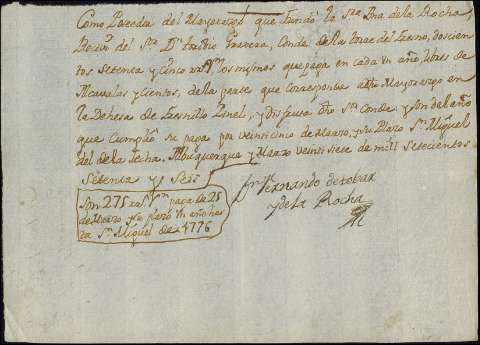 Como Poseedor del Mayorazgo que fundó la Sra Dna de la Rocha,
Recivi del Sr Dn Gravera, Conde de la Torre del Fresno, doscien
tos Setenta y Cinco rrs los mismos que paga en cada un año, libres de
Alcavalas y cientos, de la parte que corresponde a dho Mayorazgo en
la Dehesa de Fresnillo Zanel, y disfruta dho Sr Conde: y son del año
que Cumplió su paga por veinticinco de Marzo, y su Plazo Sn Miguel
del de la fecha. Alburquerque y Marzo veinti siete de mill setecientos
Setenta y Seis
Son 275 rrs Vn paga de 25
de Marzo y su plazo un año has
ta Sn Miguel de 1776
Fernando de tobar
y de la Rocha